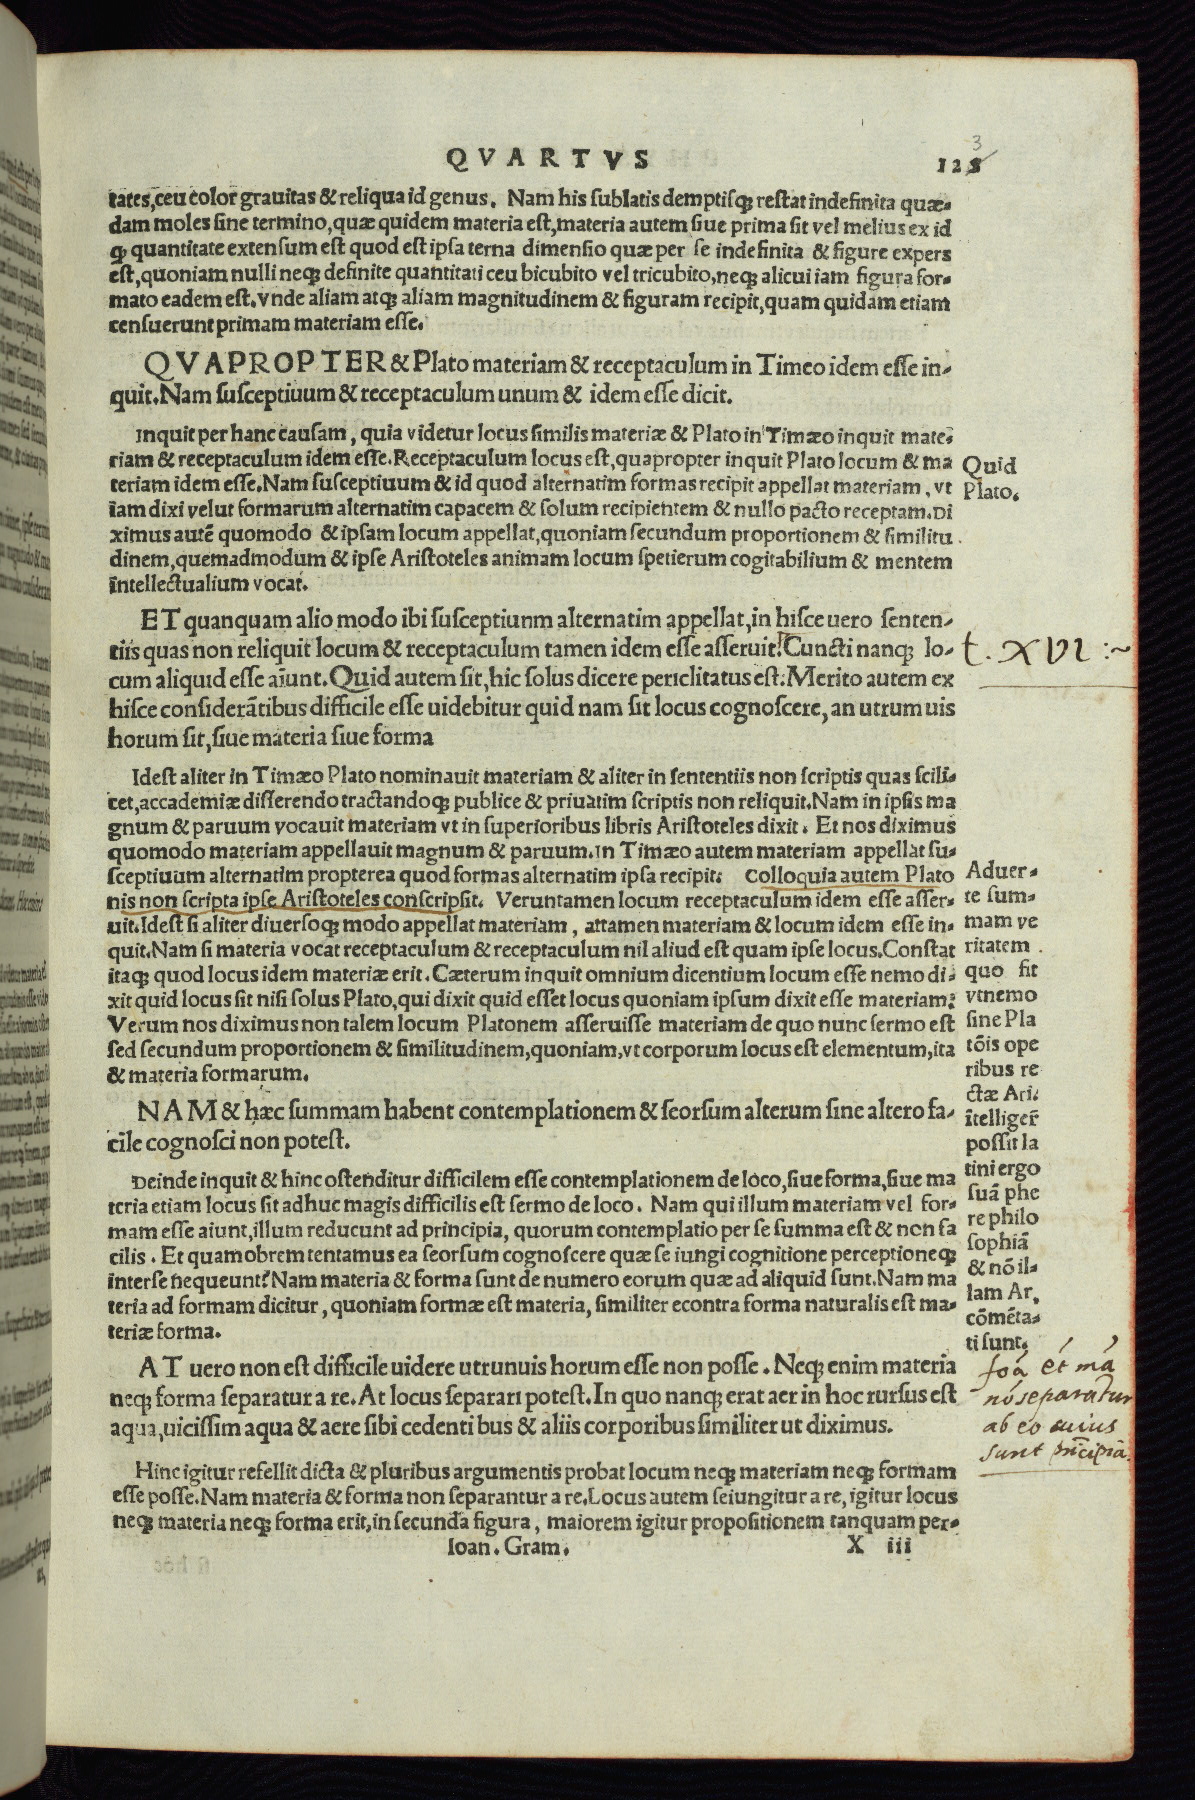 QVARTVS
128
3
tates,ceu color grauitas & reliqua id genus. Nam his sublatis demptisqꝫ restat indefinita quæ-
dam moles sine termino,quæ quidem materia est,materia autem siue prima sit vel melius ex id
ꝙ quantitate extensum est quod est ipsa terna dimensio quæ per se indefinita & figure expers
est,quoniam nulli neqꝫ definite quantitati ceu bicubito vel tricubito,neqꝫ alicui iam figura for-
mato eadem est.vnde aliam atqꝫ aliam magnitudinem & figuram recipit,quam quidam etiam
censuerunt primam materiam esse.
QVAPROPTER & Plato materiam & receptaculum in Timeo idem esse in-
quit.Nam susceptiuum & receptaculum unum & idem esse dicit.
Inquit per hanc causam, quia videtur locus similis materiæ & Plato in Timæo inquit mate-
riam & receptaculum idem esse.Receptaculum locus est,quapropter inquit Plato locum & ma
teriam idem esse.Nam susceptiuum & id quod alternatim formas recipit appellat materiam, vt
iam dixi velut formarum alternatim capacem & solum recipientem & nullo pacto receptam.Di
ximus autē quomodo & ipsam locum appellat,quoniam secundum proportionem & similitu
dinem,quemadmodum & ipse Aristoteles animam locum spetierum cogitabilium & mentem
intellectualium vocat.
Quid
Plato.
ET quanquam alio modo ibi susceptiunm alternatim appellat,in hisce uero senten-
tiis quas non reliquit locum & receptaculum tamen idem esse asseruit.Cuncti nanqꝫ lo-
cum aliquid esse aiunt.Quid autem sit,hic solus dicere periclitatus est.Merito autem ex
hisce considerātibus difficile esse uidebitur quid nam sit locus cognoscere,an utrum uis
horum sit,siue materia siue forma
t. XVI :~
Idest aliter in Timæo Plato nominauit materiam & aliter in sententiis non scriptis quas scili-
cet,accademiæ disserendo tractandoqꝫ publice & priuatim scriptis non reliquit.Nam in ipsis ma
gnum & paruum vocauit materiam vt in superioribus libris Aristoteles dixit. Et nos diximus
quomodo materiam appellauit magnum & paruum.In Timæo autem materiam appellat su-
sceptiuum alternatim propterea quod formas alternatim ipsa recipit. Colloquia autem Plato
nis non scripta ipse Aristoteles conscripsit. Veruntamen locum receptaculum idem esse asser-
uit.Idest si aliter diuersoqꝫ modo appellat materiam, attamen materiam & locum idem esse in-
quit.Nam si materia vocat receptaculum & receptaculum nil aliud est quam ipse locus.Constat
itaqꝫ quod locus idem materiæ erit.Cæterum inquit omnium dicentium locum esse nemo di-
xit quid locus sit nisi solus Plato,qui dixit quid esset locus quoniam ipsum dixit esse materiam.
Verum nos diximus non talem locum Platonem asseruisse materiam de quo nunc sermo est
sed secundum proportionem & similitudinem,quoniam,vt corporum locus est elementum,ita
& materia formarum.
Aduer-
te sum-
mam ve
ritatem
quo sit
vtnemo
sine Pla
tōis ope
ribus re
ctæ Ari.
ītelligeř
possit la
tini ergo
suā phe
re philo
sophiā
& nō il-
lam Ar.
cōmēta-
ti sunt.
NAM & hæc summam habent contemplationem & seorsum alterum sine altero fa-
cile cognosci non potest.
Deinde inquit & hinc ostenditur difficilem esse contemplationem de loco,siue forma,siue ma
teria etiam locus sit adhuc magis difficilis est sermo de loco. Nam qui illum materiam vel for-
mam esse aiunt,illum reducunt ad principia, quorum contemplatio per se summa est & non fa
cilis. Et quamobrem tentamus ea seorsum cognoscere quæ se iungi cognitione perceptioneqꝫ
interse nequeunt?Nam materia & forma sunt de numero eorum quæ ad aliquid sunt.Nam ma
teria ad formam dicitur, quoniam formæ est materia, similiter econtra forma naturalis est ma-
teriæ forma.
AT uero non est difficile uidere utrunuis horum esse non posse. Neqꝫ enim materia
neqꝫ forma separatur a re.At locus separari potest.In quo nanqꝫ erat aer in hoc rursus est
aqua,uicissim aqua & aere sibi cedenti bus & aliis corporibus similiter ut diximus.
foā et mā
nō separatur
ab eo cuius
sunt prīcipiā.
Hinc igitur refellit dicta & pluribus argumentis probat locum neqꝫ materiam neqꝫ formam
esse posse.Nam materia & forma non separantur a re.Locus autem seiungitur a re, igitur locus
neqꝫ materia neqꝫ forma erit,in secunda figura, maiorem igitur propositionem tanquam per-
Ioan. Gram. X iii